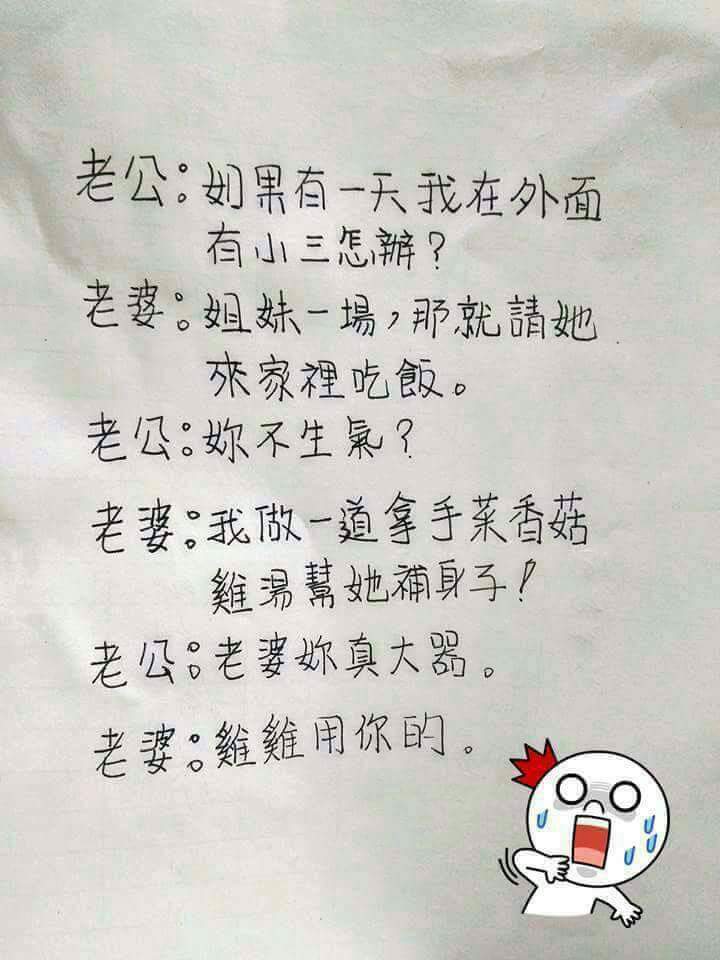 老公:如果有一天我在外面
有小三怎辦?
老婆:姐妹一場,那就請她
來家裡吃飯。
老公:妳不生氣?
老婆:我做一道拿手菜香菇
雞湯幫她補身子!
老公:老婆妳真大器。
老婆:雞雞用你的。